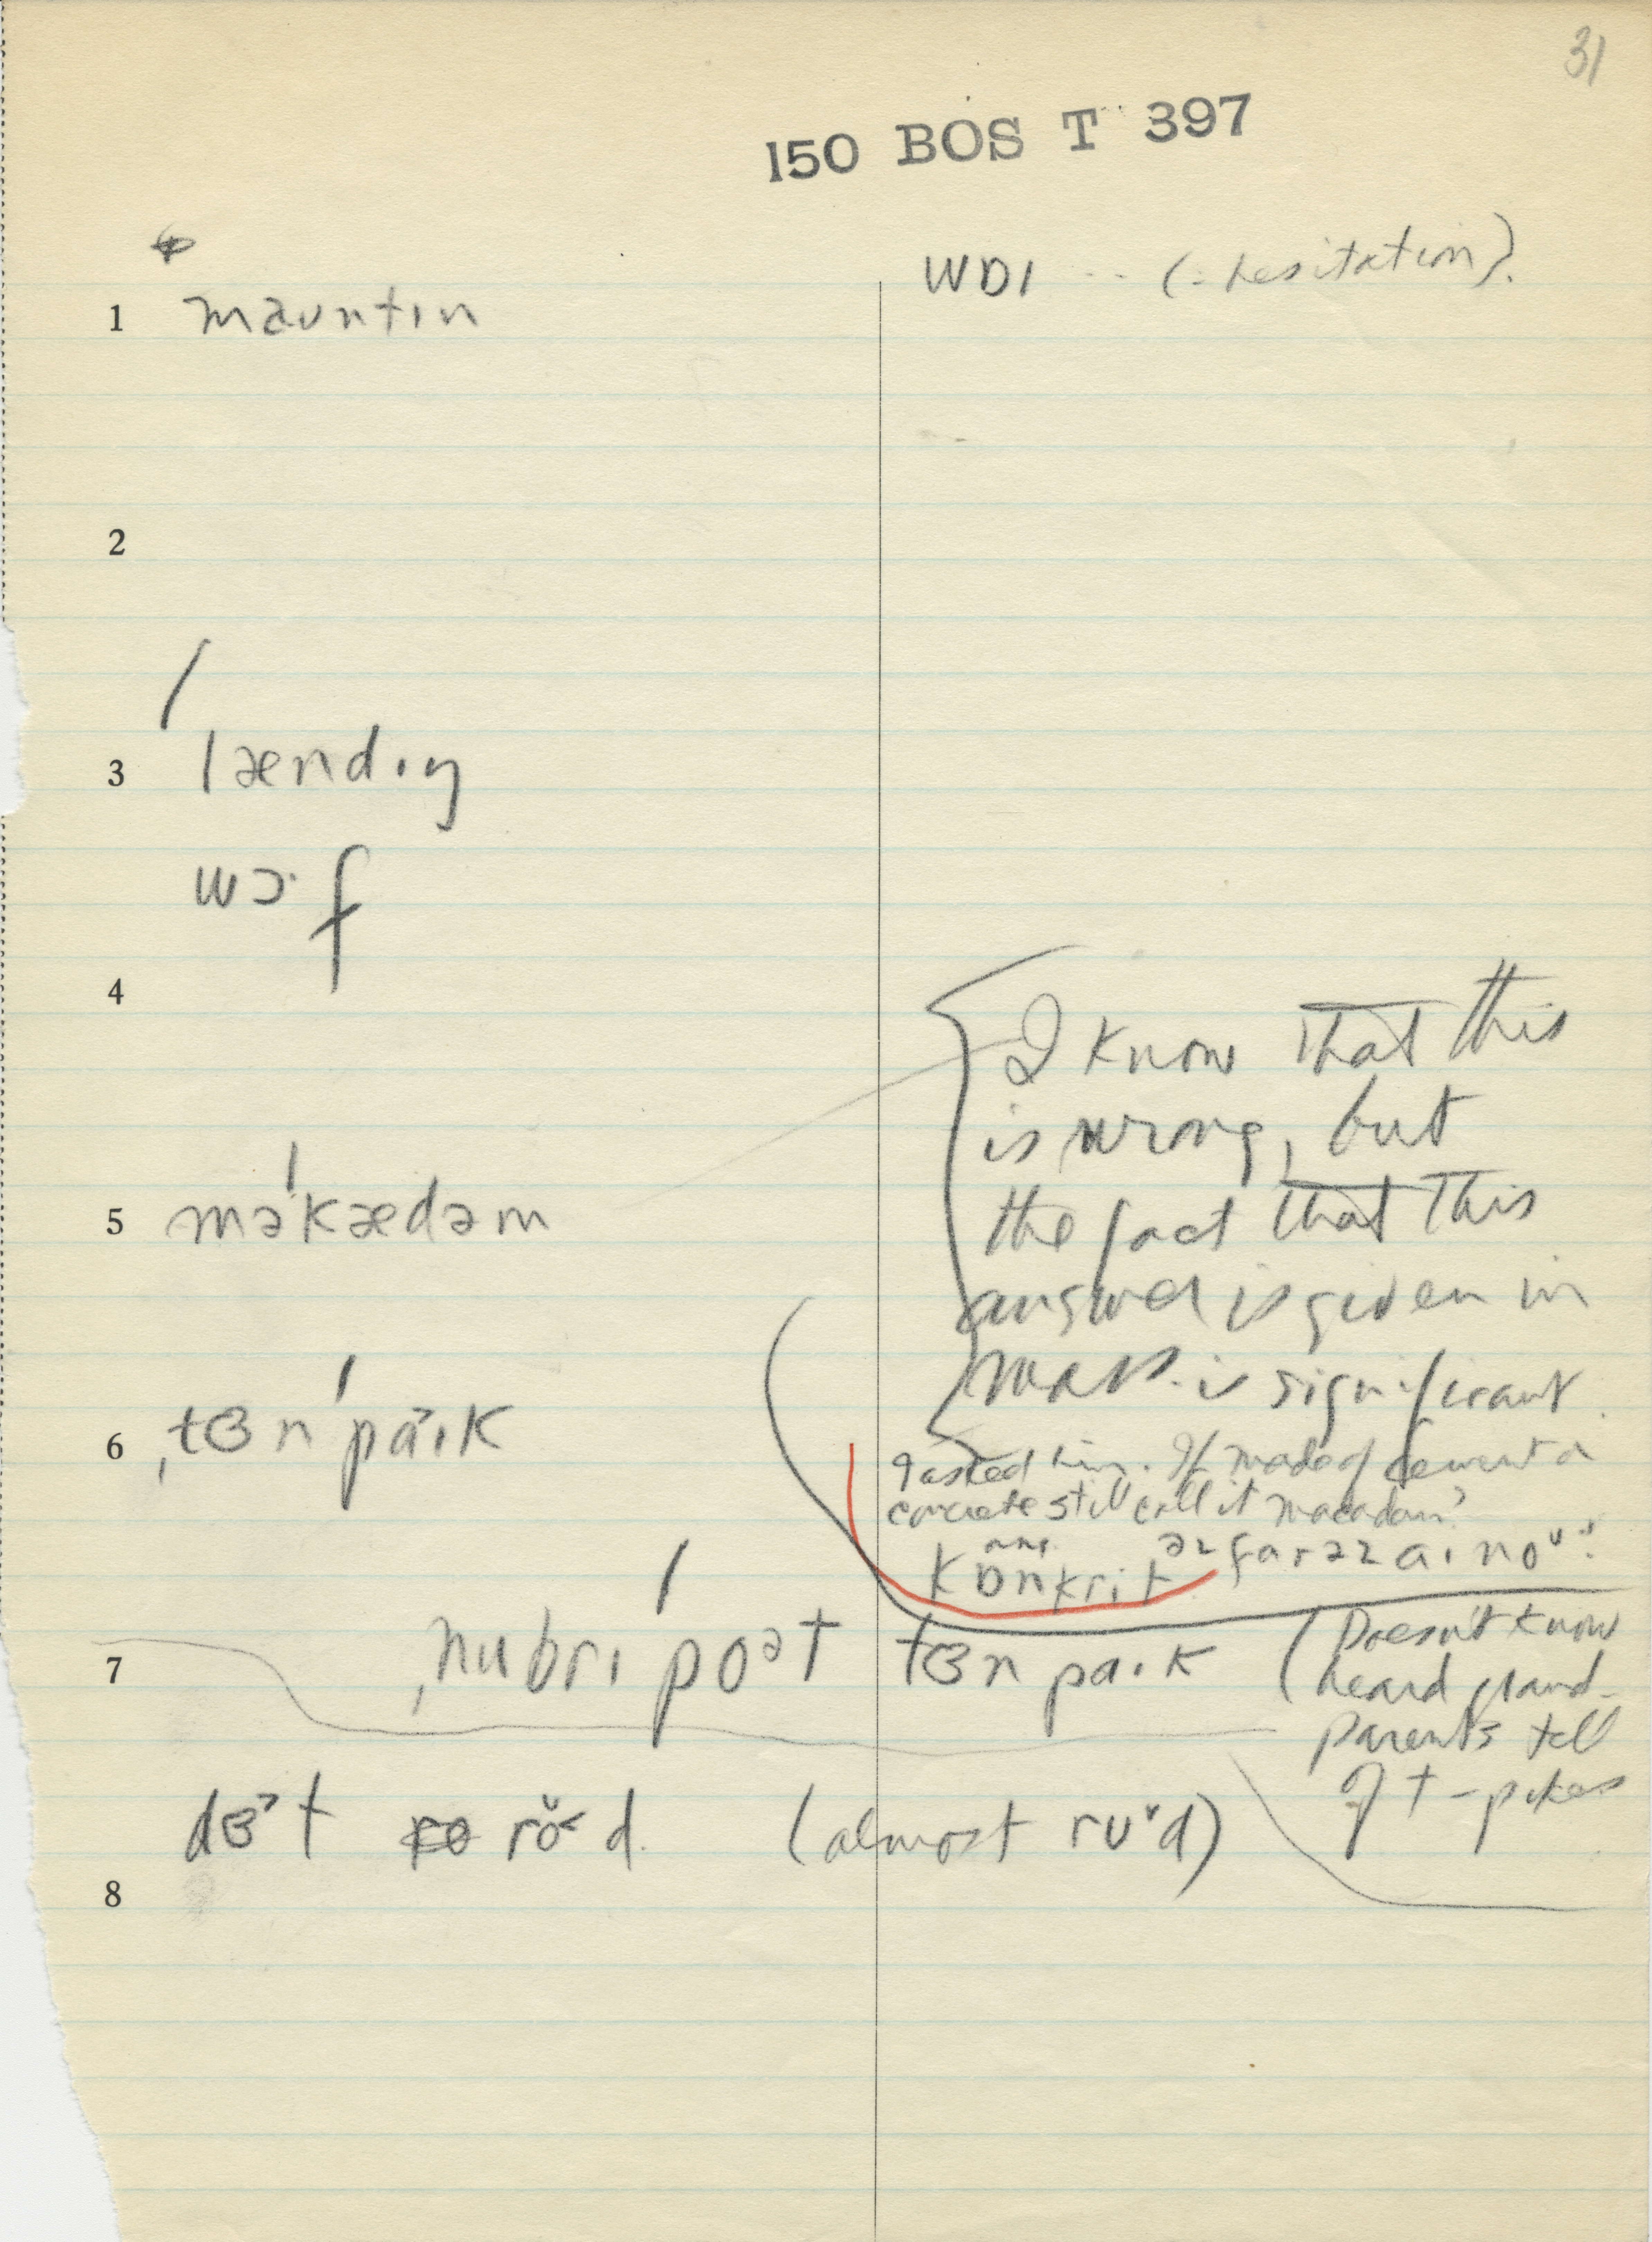 31
150 BOS T 397
WDI -- (= hesitation).
1 mauntɪn
2
3 lændɪŋ
wɔ·f
4
I know that this
is wrong, but
the fact that this
answer is given in
Mass. is significant.
5 mə'kædəm
6 ˌtɜn'paˑɪk
I asked him. If made of cement or
concrete still call it macadam?
ans.
kɒnkrit əz far əz aɪ noᵘ.
7 ˌnubrɪ'poət tɜn paɪk (Doesn't know
heard grand-
parents tell
of t-pikes
dɜ't roˇ˂d. (almost rʊˇd)
8